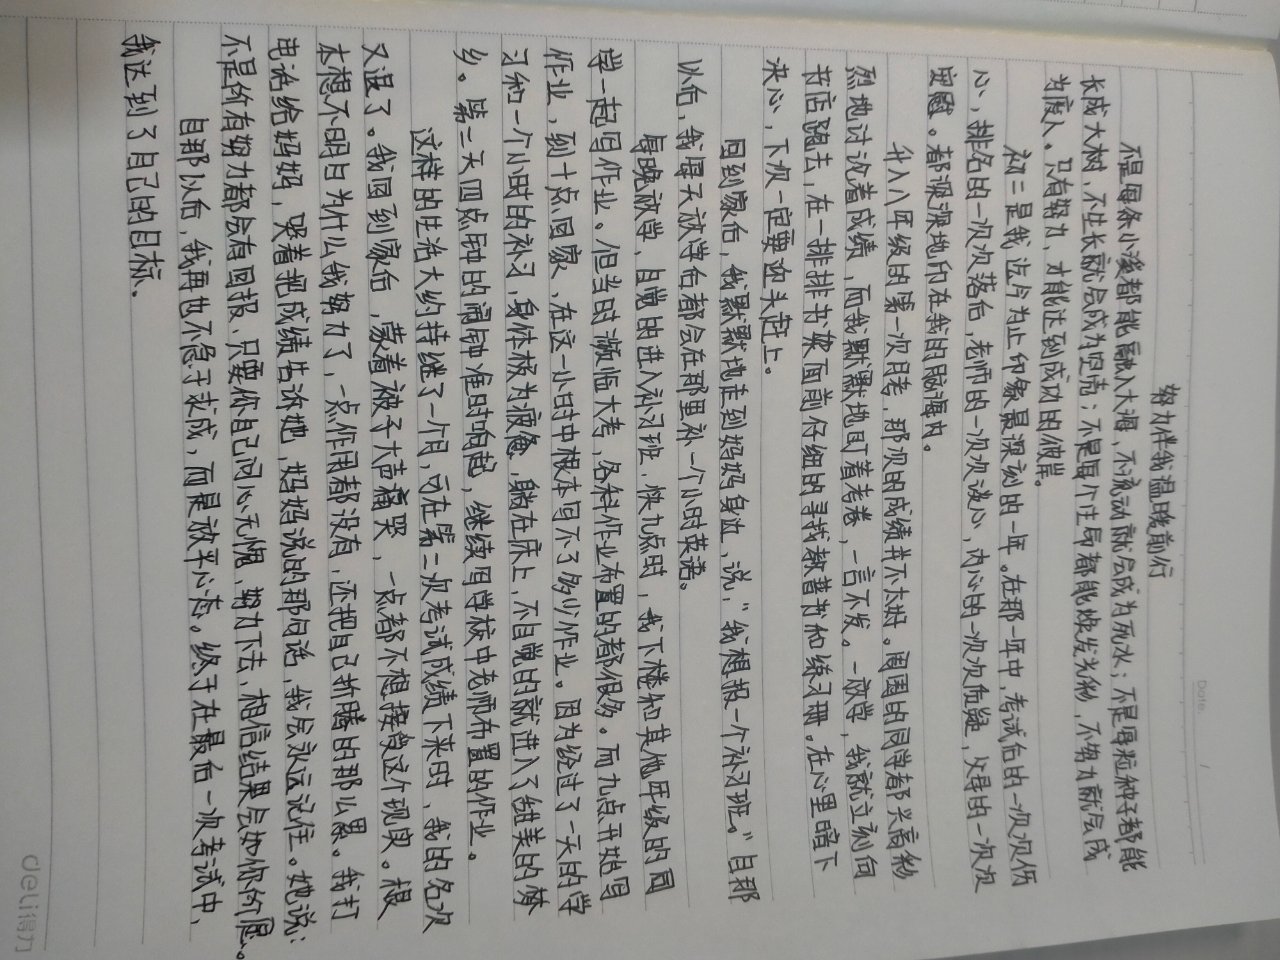 Date. /
努力伴我温暖前行
不是每条小溪都能融入大海，不流动就会成为死水；不是每粒种子都能
长成大树，不生长就会成为空壳；不是每个生局都能焕发光彩，不努力就会成
为废人。只有努力，才能达到成功的彼岸。
初二是我迄今为止印象最深刻的一年。在那一年中，考试后的一次次伤
心，排名的一次次落后，老师的一次次谈心，内心的一次次质疑，父母的一次次
安慰。都深深地印在我的脑海内。
升入八年级的第一次月考，那次的成绩并不太好。周围的同学都兴高彩
烈地讨论着成绩，而我默默地盯着考卷，一言不发。一放学，我就立刻向
书店跑去，在一排排书架面前仔细的寻找教着书和练习册。在心里暗下
决心，下次一定要迎头赶上。
回到家后，我默默地走到妈妈身边，说，“我想报一个补习班。”自那
以后，我每天放学后都会在那里补一个小时英语。
每晚放学，自觉的进入补习班，快九点时，我下楼和其他年级的同
学一起写作业。但当时濒临大考，各科作业布置的都很多。而九点开始写
作业，到十点回家，在这一小时中根本写不了多少作业。因为经过了一天的学
习和一个小时的补习，身体极为疲惫，躺在床上，不自觉的就进入了甜美的梦
乡。第二天四点钟的闹钟准时响起，继续写学校中老师布置的作业。
这样的生活大约持继了一个月，可在第二次考试成绩下来时，我的名次
又退了。我回到家后，蒙着被子大声痛哭，一点都不想接受这个现实。根
本想不明白为什么我努力了，一点作用都没有，还把自己折腾的那么累。我打
电话给妈妈，哭着把成绩告诉她，妈妈说的那句话，我会永远记住。她说：
不是所有努力都会有回报，只要你自己问心无愧，努力下去，相信结果会如你所愿。
自那以后，我再也不急于求成，而是放平心态。终于在最后一次考试中，
我达到了自己的目标。
deli得力